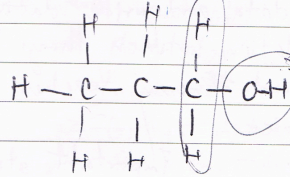 H H H
H — C — C — C — O-H
H H H